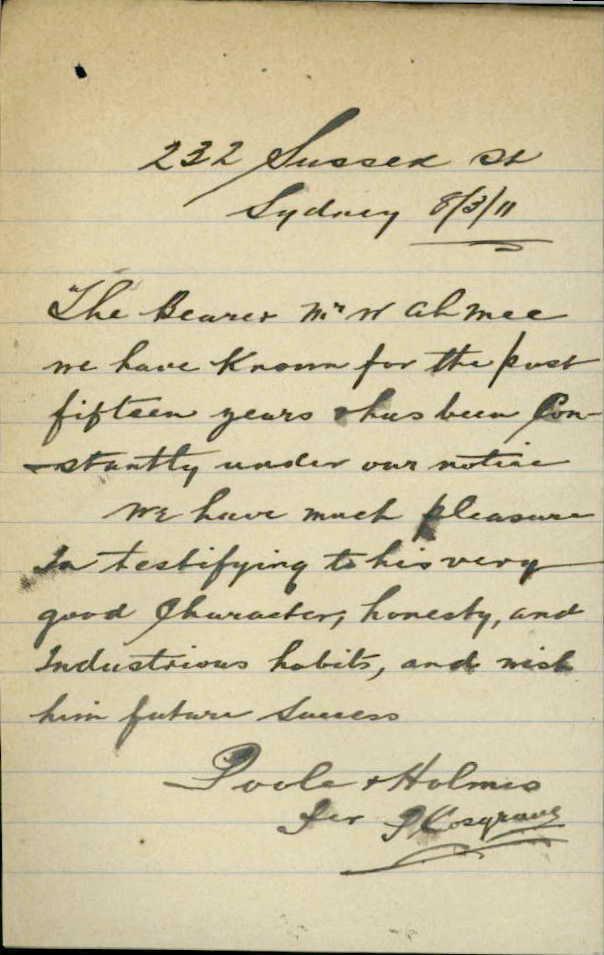 232 Sussex St
Sydney 8/3/11
The Bearer Mr W Ah Mee
we have Known for the past
fifteen years & has been Con-
-stantly under our notice
We have much pleasure
In testifying to his very
good Character, honesty, and
Industrious habits, and wish
him future Success
Poole & Holmes
Per P Cosgrave